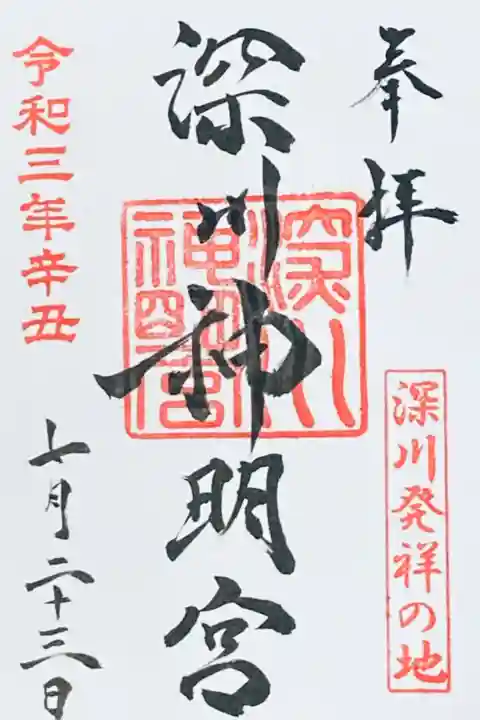 奉拝
深川発祥の地
深川神明宮
深川神明宮
令和三年辛丑
七月二十三日